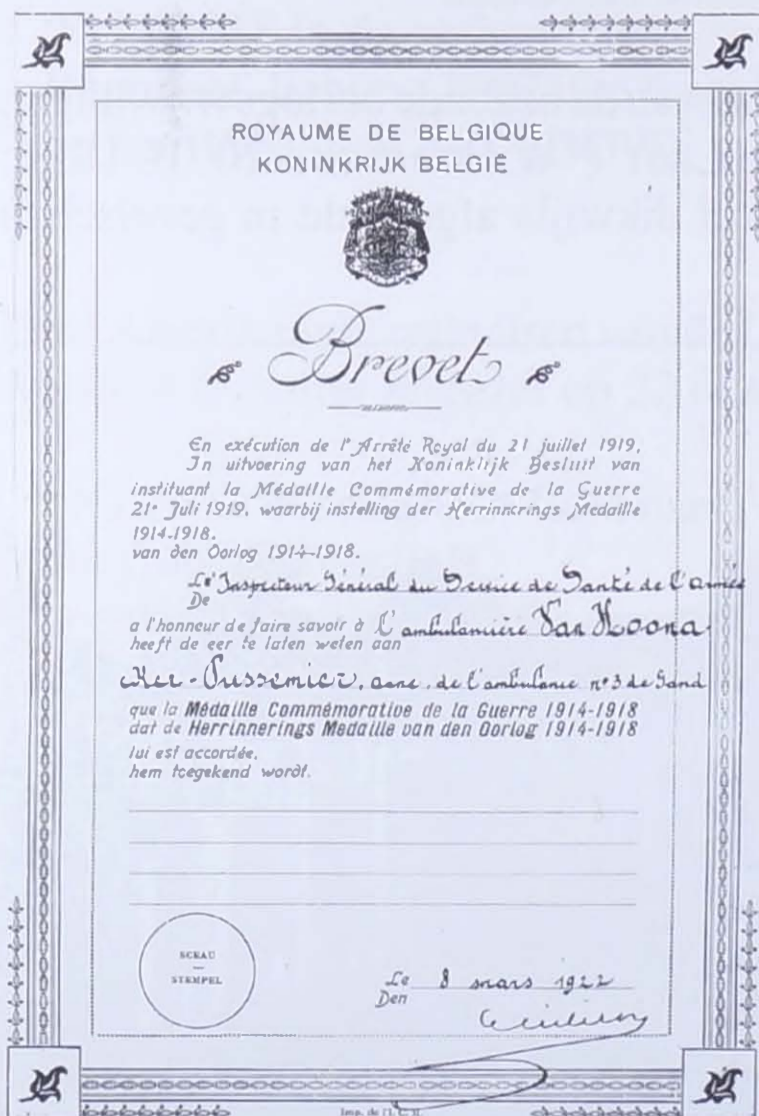 ROYAUME DE BELGIQUE
KONINKRIJK BELGIË
Brevet
En exécution de l'Arrêté Royal du 21 juillet 1919,
In uitvoering van het Koninklijk Besluit van
instituant la Médaille Commémorative de la Guerre
21e Juli 1919, waarbij instelling der Herrinnerings Medaille
1914-1918.
van den Oorlog 1914-1918.
Le Inspecteur Général du Service de Santé de l'armée
De
a l'honneur de faire savoir à L'ambulancière Van
heeft de eer te laten weten aan
de l'ambulance n° 3 de Gand
que la Médaille Commémorative de la Guerre 1914-1918
dat de Herrinnerings Medaille van den Oorlog 1914-1918
lui est accordée.
hem toegekend wordt.
SCEAU
STEMPEL
Le 8 mars 1922
Den
Imp. de